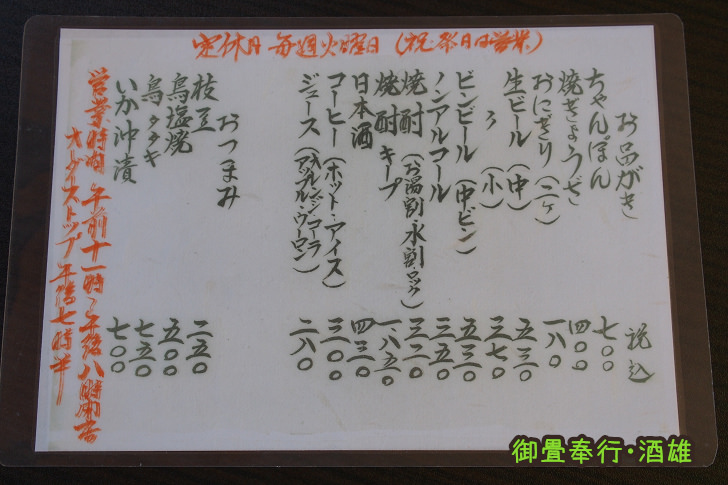 定休日 毎週火曜日(祝祭日は営業)
お品がき 税込
ちゃんぽん 七〇〇
焼ぎょうざ 四〇〇
おにぎり(二ヶ) 一八〇
生ビール(中) 五三〇
〃(小) 三七〇
ビンビール(中ビン) 五三〇
ノンアルコール 三五〇
焼酎(お湯割・水割・ロック) 三二〇
焼酎キープ 一、八五〇
日本酒 四三〇
コーヒー(ホット・アイス) 三〇〇
ジュース(オレンジ・コーラ アップル・ウーロン) 二八〇
おつまみ
枝豆 二五〇
鳥塩焼 五〇〇
鳥タタキ 七五〇
いか沖漬 七〇〇
営業時間 午前十一時〜午後八時閉店
オーダーストップ 午後七時半
御畳奉行・酒雄